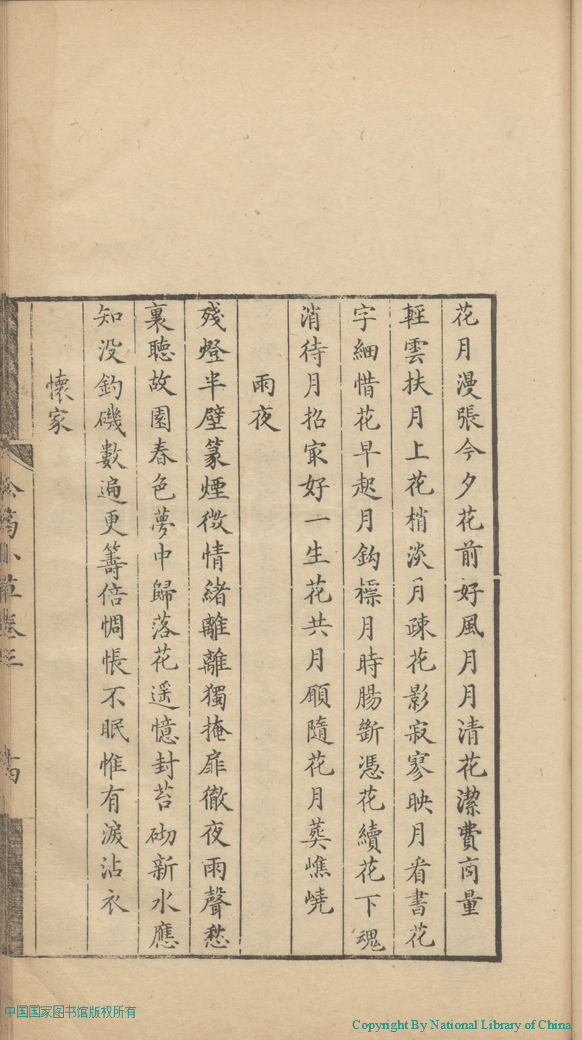 花月漫張今夕花前好風月月清花潔費商量
輕雲扶月上花梢淡月疎花影寂寥映月看書花
字細惜花早起月鈎標月時腸斷憑花續花下魂
消待月招㝡好一生花共月願隨花月葬嶕嶢
雨夜
殘燈半壁篆煙微情緒離離獨掩扉徹夜雨聲愁
裏聽故園春色夢中歸落花遥憶封苔砌新水應
知没釣磯數遍更籌倍惆悵不眠惟有淚沾衣
懷家
小草卷三
中国国家图书馆版权所有
Copyright By National Library of China